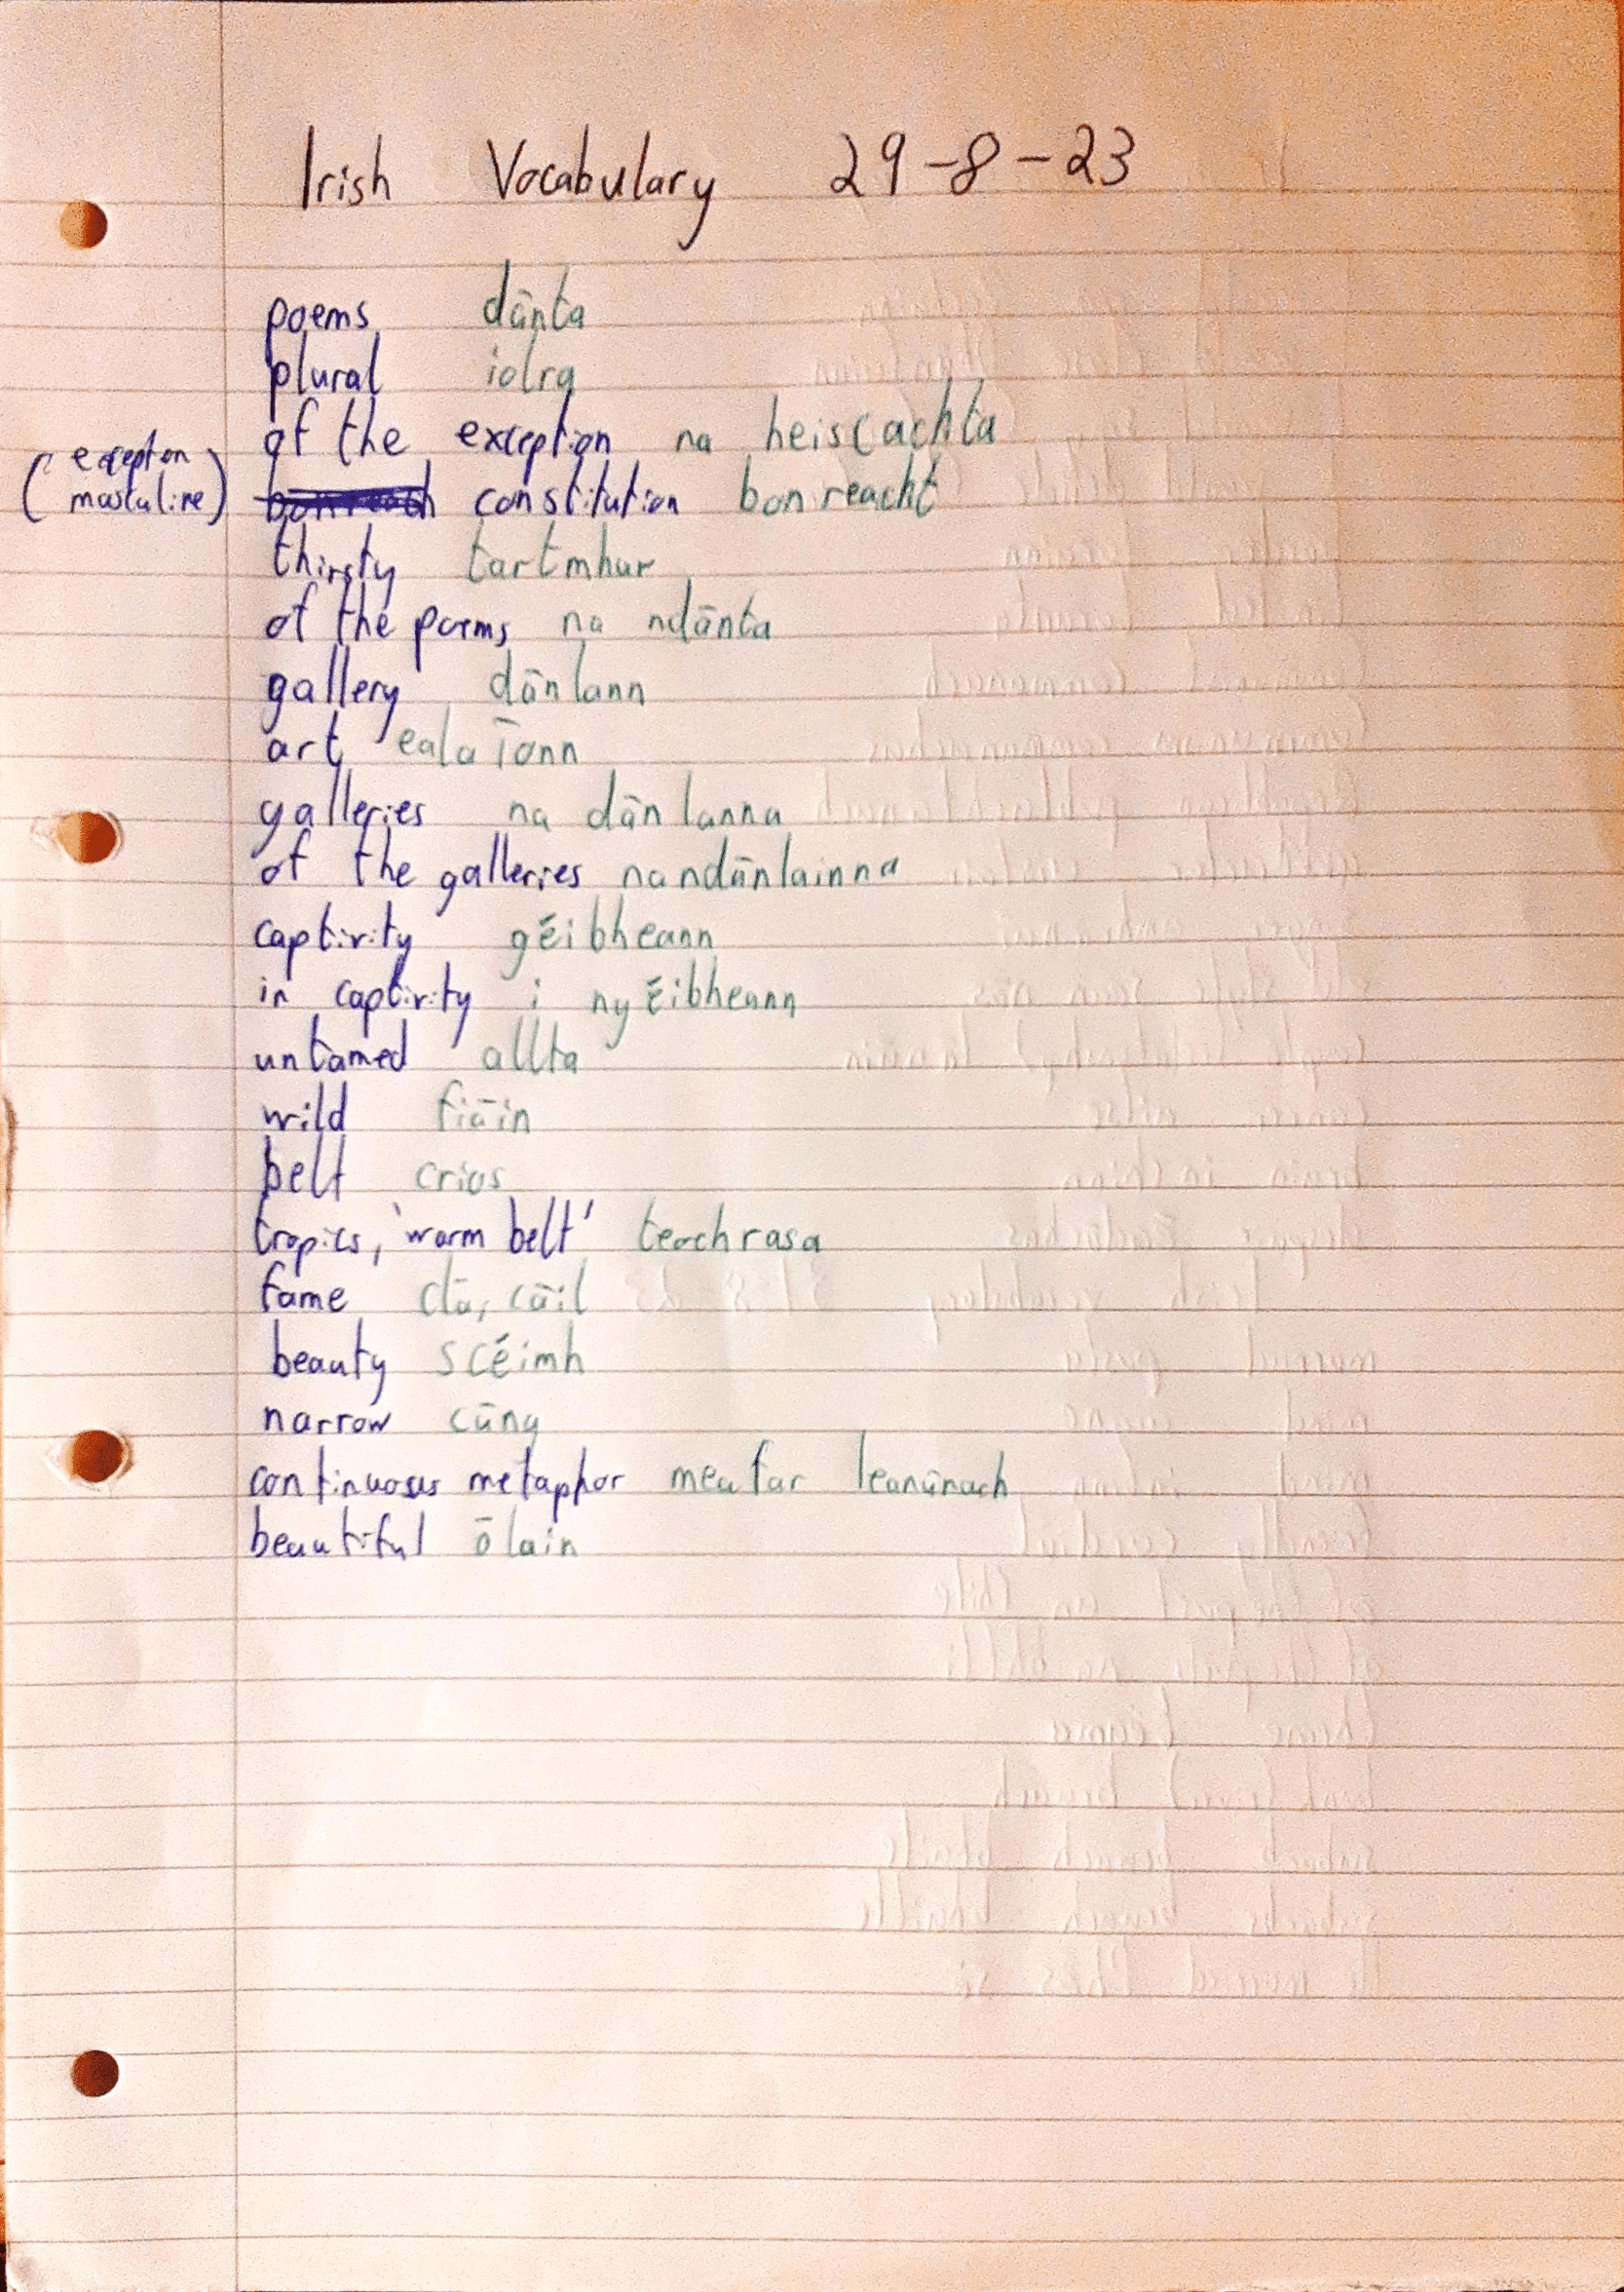 Irish Vocabulary 29-8-23
poems dānta
plural iolra
of the exception na heiscachta
(exception masculine) constitution bonreacht
thirsty tartmhar
of the poems na ndānta
gallery dānlann
art ealaīonn
galleries na dānlanna
of the galleries na ndānlainna
captivity géibheann
in captivity i ngéibheann
untamed allta
wild fiāin
belt crios
tropics, 'warm belt' teochrasa
fame clū, cāil
beauty scéimh
narrow cūng
continuous metaphor meafar leanūnach
beautiful ōlain